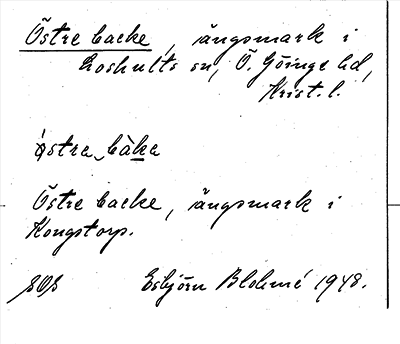 Östre backe, ängsmark i
Loshults sn, Ö. Göinge hd,
Krist. l.
östre bàke
Östre backe, ängsmark i
Kongstorp.
Esbjörn Blohmé 1948.